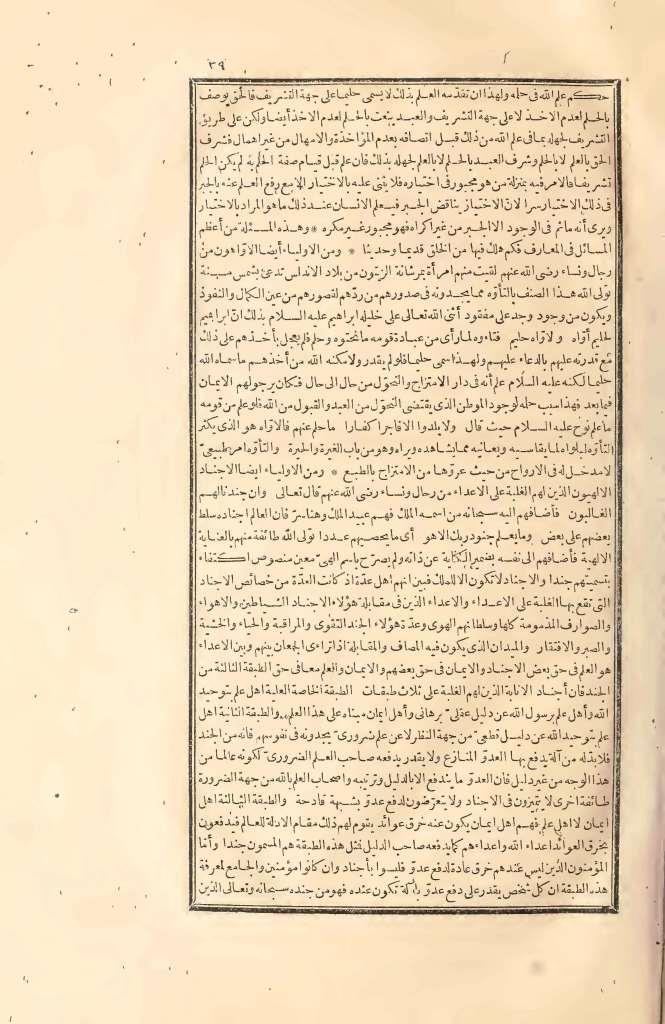 ٣٩
حكم علم الله فى حلمه ولهذا ان تقدّمه العلم بذلك لا يسمى حليما على جهة التشريف فالحق يوصف
بالحلم لعدم الاخذ لا على جهة التشريف والعبد ينعت بالحلم لعدم الاخذ أيضا ولكن على طريق
التشريف لجهله بما فى علم الله من ذلك قبل اتصافه بعدم المؤاخذة والامهال من غير اهمال فشرف
الحق بالعلم لا بالحلم وشرف العبد بالحلم لا بالعلم لجهله بذلك فان علم قبل قيام صفة الحلم به لم يكن الحلم
تشريفا فالامر فيه بمنزلة من هو مجبور فى اختياره فلا يثنى عليه بالاختيار الا مع رفع العلم عنه بالجبر
فى ذلك الاختيار سرا لانّ الاختيار يناقض الجبر فيعلم الانسان عند ذلك ما هو المراد بالاختيار
ويرى أنه ماثم فى الوجود الا الجبر من غير اكراه فهو مجبور غير مكره * وهذه المسئلة من أعظم
المسائل فى المعارف فكم هلك فيها من الخلق قديما وحديثا * ومن الاولياء أيضا الاوّاهون من
رجال ونساء رضى الله عنهم لقيت منهم امرأة بمرشانة الزيتون من بلاد الاندلس تدعى شمس مسنة
تولى الله هذا الصنف بالتأوّه مما يجدونه فى صدورهم من ردّهم لقصورهم من عين الكمال والنفوذ
ويكون من وجود وجد على مفقود أثنى الله تعالى على خليله ابراهيم عليه السلام بذلك انّ ابراهيم
لحليم أوّاه ولاوّاه حليم فتأوه لما رأى من عبادة قومه ما نحتوه وحلم فلم يعجل بأخذهم على ذلك
مع قدرته عليهم بالدعاء عليهم ولهذا سمى حليما فلو لم يقدر ولا مكنه الله من أخذهم ما سماه الله
حليما لكنه عليه السلام علم أنه فى دار الامتزاج والتحوّل من حال الى حال فكان يرجو لهم الايمان
فيما بعد فهذا سبب حلمه لوجود الموطن الذى يقتضى التحوّل من العبد والقبول من الله فلو علم من قومه
ما علم نوح عليه السلام حيث قال ولا يلدوا الا فاجرا كفارا ما حلم عنهم فالاوّاه هو الذى يكثر
التأوّه لبلواه لما يقاسيه ويعانيه مما يشاهده ويراه وهو من باب الغيرة والحيرة والتأوّه امر طبيعىّ
لا مدخل له فى الارواح من حيث عروّها من الامتزاج بالطبع * ومن الاولياء ايضا الاجناد
الالهيون الذين لهم الغلبة على الاعداء من رجال ونساء رضى الله عنهم قال تعالى وان جندنا لهم
الغالبون فأضافهم اليه سبحانه من اسمه الملك فهم عبيد الملك وهنا سرّ فان العالم اجناده سلط
بعضهم على بعض وما يعلم جنود ربك الا هو أى ما يحصيهم عددا تولى الله طائفة منهم بالعناية
الالهية فأضافهم الى نفسه بضمير الكناية عن ذاته ولم يصرّح باسم الهىّ معين منصوص اكتفاء
بتسميتهم جندا والاجناد لا تكون الا لملك فبين انهم اهل عدّة اذ كانت العدّة من خصائص الاجناد
التى تقع بها الغلبة على الاعداء والاعداء الذين فى مقابلة هؤلاء الاجناد الشياطين والاهواء
والصوارف المذمومة كلها وسلطانهم الهوى وعدّة هؤلاء الجند التقوى والمراقبة والحياء والخشية
والصبر والافتقار والميدان الذى يكون فيه المصاف والمقابلة اذا تراءى الجمعان بينهم وبين الاعداء
هو العلم فى حق بعض الاجناد والايمان فى حق بعضهم والايمان والعلم معا فى حق الطبقة الثالثة من
الجند فان أجناد الانابة الذين لهم الغلبة على ثلاث طبقات الطبقة الخاصة العلية اهل علم بتوحيد
الله وأهل علم برسول الله عن دليل عقلىّ برهانى وأهل ايمان مبناه على هذا العلم والطبقة الثانية اهل
علم بتوحيد الله عن دليل قطعىّ من جهة النظر لا عن علم ضرورىّ يجدونه فى نفوسهم فانه من الجند
فلا بدّ له من آلة يدفع بها العدوّ المنازع ولا يقدر يدفعه صاحب العلم الضرورىّ لكونه عالما من
هذا الوجه من غير دليل فان العدوّ ما يندفع الا بالدليل وترتيبه واصحاب العلم بالله من جهة الضرورة
طائفة اخرى لا يتميزون فى الاجناد ولا يتعرّضون لدفع عدوّ بشبهة قادحة والطبقة الثالثة اهل
ايمان لا اهل علم فهم اهل ايمان يكون عنه خرق عوائد يقوم لهم ذلك مقام الادلة للعالم فيدفعون
بخرق العوائد اعداء الله واعداءهم كما يدفعه صاحب الدليل فمثل هذه الطبقة هم المسمون جندا وأمّا
المؤمنون الذين ليس عندهم خرق عادة لدفع عدوّ فليسوا بأجناد وان كانوا مؤمنين والجامع لمعرفة
هذه الطبقة ان كل شخص يقدر على دفع عدوّ بآلة تكون عنده فهو من جنده سبحانه وتعالى الذين